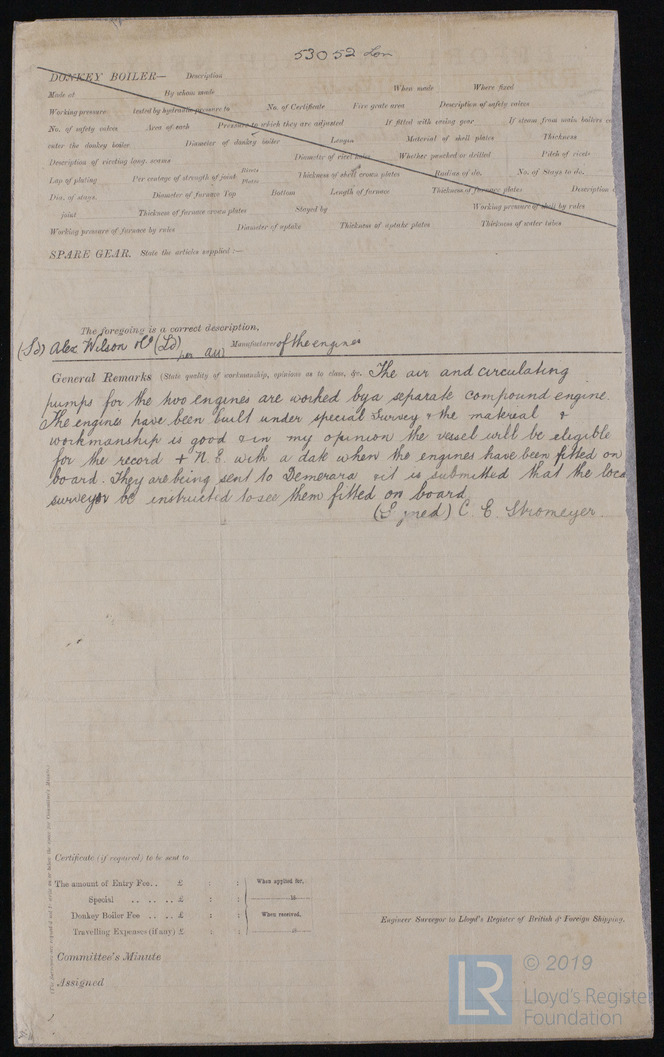 53052 Lon
DONKEY BOILER— Description
Made at By whom made When made Where fixed
Working pressure tested by hydraulic pressure to No. of Certificate Fire grate area Description of safety valves
No. of safety valves Area of each Pressure to which they are adjusted If fitted with easing gear If steam from main boilers
enter the donkey boiler Diameter of donkey boiler Length Material of shell plates Thickness
Description of riveting long. seams Diameter of rivet holes Whether punched or drilled Pitch of rivets
Lap of plating Per centage of strength of joint Rivets Plates Thickness of shell crown plates Radius of do. No. of Stays to do.
Dia. of stays. Diameter of furnace Top Bottom Length of furnace Thickness of furnace plates Description
joint Thickness of furnace crown plates Stayed by Working pressure of shell by rules
Working pressure of furnace by rules Diameter of uptake Thickness of uptake plates Thickness of water tubes
SPARE GEAR. State the articles supplied :—
The foregoing is a correct description,
(Sd) Alex Wilson & Co (Ld) per Manufacturer of the engines
General Remarks (State quality of workmanship, opinions as to class, &c. The air and circulating
pumps for the two engines are worked by a separate compound engine.
The engines have been built under special Survey & the material &
workmanship is good & in my opinion the vessel will be eligible
for the record + N. E. with a date when the engines have been fitted on
board. They are being sent to Demerara & it is submitted that the loca
surveyor be instructed to see them fitted on board
(Signed) C. E. Stromeyer.
Certificate (if required) to be sent to
The amount of Entry Fee.. £ : : When applied for,
Special .. .. .. £ : : 18
Donkey Boiler Fee .. .. £ : : When received,
Travelling Expenses (if any) £ : :
Engineer Surveyor to Lloyd's Register of British & Foreign Shipping.
Committee's Minute
Assigned
LR © 2019
Lloyd's Register
Foundation